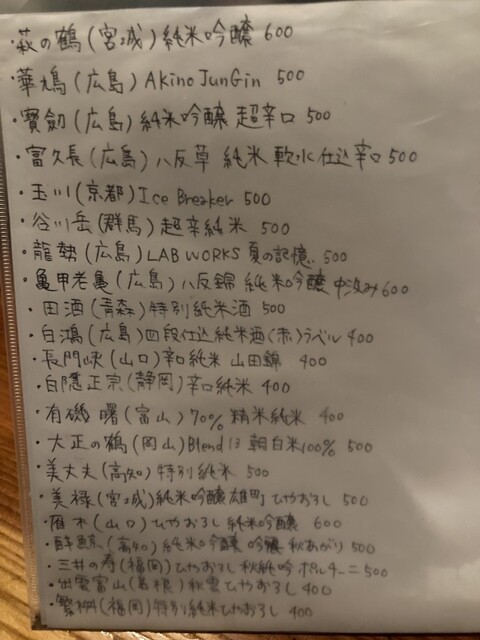 ・萩の鶴(宮城)純米吟醸 600
・華鳩(広島)Akino JunGin 500
・寶劔(広島)純米吟醸 超辛口 500
・富久長(広島)八反草 純米 軟水仕込辛口 500
・玉川(京都)Ice Breaker 500
・谷川岳(群馬)超辛純米 500
・龍勢(広島)LAB WORKS 夏の記憶 500
・亀甲老亀(広島)八反錦 純米吟醸 中汲み 600
・田酒(青森)特別純米酒 500
・白鴻(広島)四段仕込純米酒(赤)ラベル 400
・長門峡(山口)辛口純米 山田錦 400
・白隠正宗(静岡)辛口純米 400
・有磯 曙(富山)70% 精米純米 400
・大正の鶴(岡山)Blend 13 朝日米100% 500
・美丈夫(高知)特別純米 500
・美禄(宮城)純米吟醸雄町 ひやおろし 500
・雁木(山口)ひやおろし 純米吟醸 600
・酔鯨(高知)純米吟醸 吟麗 秋あがり 500
・三井の寿(福岡)ひやおろし 秋純吟 ポルチーニ 500
・出雲富士(島根)秋雲 ひやおろし 400
・繁桝(福岡)特別純米ひやおろし 400